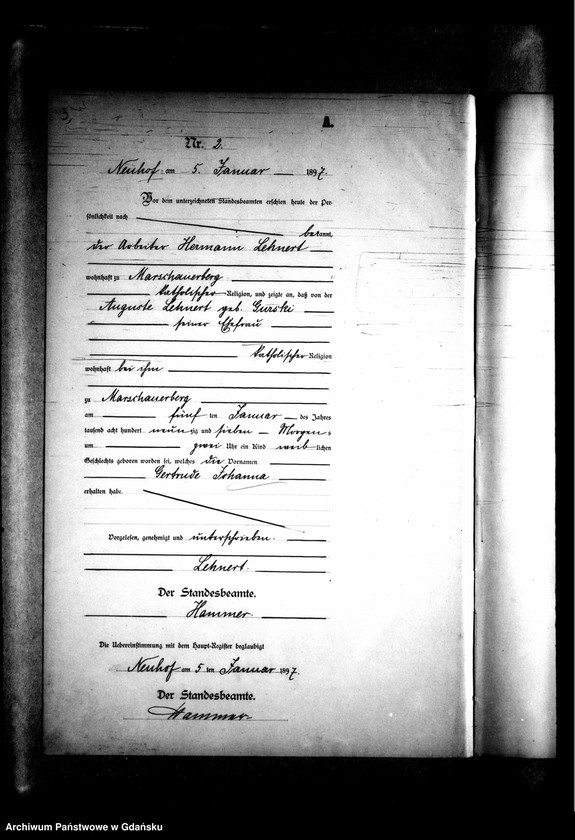 A.
Nr. 2.
Neuhof am 5. Januar 1897.
Vor dem unterzeichneten Standesbeamten erschien heute der Per-
sönlichkeit nach
bekannt,
der Arbeiter Hermann Lehnert
wohnhaft zu Marschauerberg
katholischer Religion, und zeigte an, daß von der
Auguste Lehnert geb. Gurski
seiner Ehefrau
katholischer Religion
wohnhaft bei ihm
zu Marschauerberg
am fünf ten Januar des Jahres
tausend acht hundert neunzig und sieben Morgens
um zwei Uhr ein Kind weiblichen
Geschlechts geboren worden sei, welches die Vornamen
Gertrude Johanna
erhalten habe.
Vorgelesen, genehmigt und unterschrieben.
Lehnert.
Der Standesbeamte.
Hammer.
Die Uebereinstimmung mit dem Haupt-Register beglaubigt
Neuhof am 5 ten Januar 1897.
Der Standesbeamte.
Hammer
Archiwum Państwowe w Gdańsku